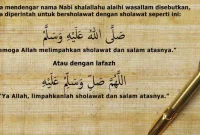 a mendengar nama Nabi shalallahu alaihi wasallam disebutkan,
a diperintah untuk bersholawat dengan sholawat seperti ini:
صَلَّى اللهُ عَلَيْهِ وَسَلَّمَ
emoga Allah melimpahkan sholawat dan salam atasnya."
Atau dengan lafazh
اَللّٰهُمَّ صَلِّ وَسَلِّمْ عَلَيْهِ
"Ya Allah, limpahkanlah sholawat dan salam atasnya."